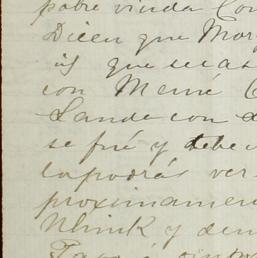 pobre viuda Con
Dicen que Mar
que seas
con Memé
Lande con
se fué y debe
lapodrás ver
proximamen
Nhink y den